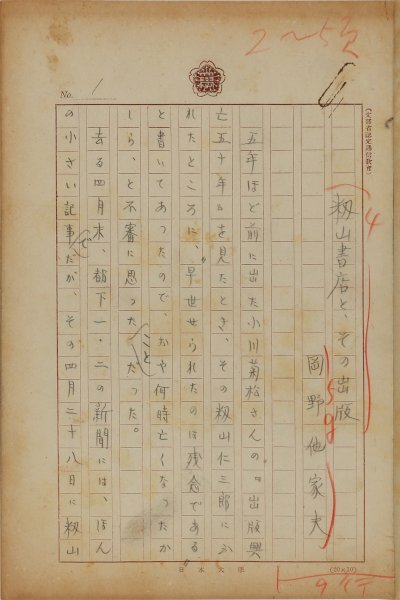 2〜5頁
No. 1
(文部省認定通信教育)
籾山書店と、その出版
4
岡野他家夫
15g
五年ほど前に出た小川菊松さんの『出版興
亡五十年』を見たとき、その籾山仁三郎にふ
れたところに、"早世せられたのは残念である"
と書いてあつたので、おや何時亡くなつたか
しら、と不審に思つたことだつた。
去る四月末、都下一・二の新聞には、ほん
の小さい記事でだが、その四月二十八日に籾山
日本大學
(20×10)
9行